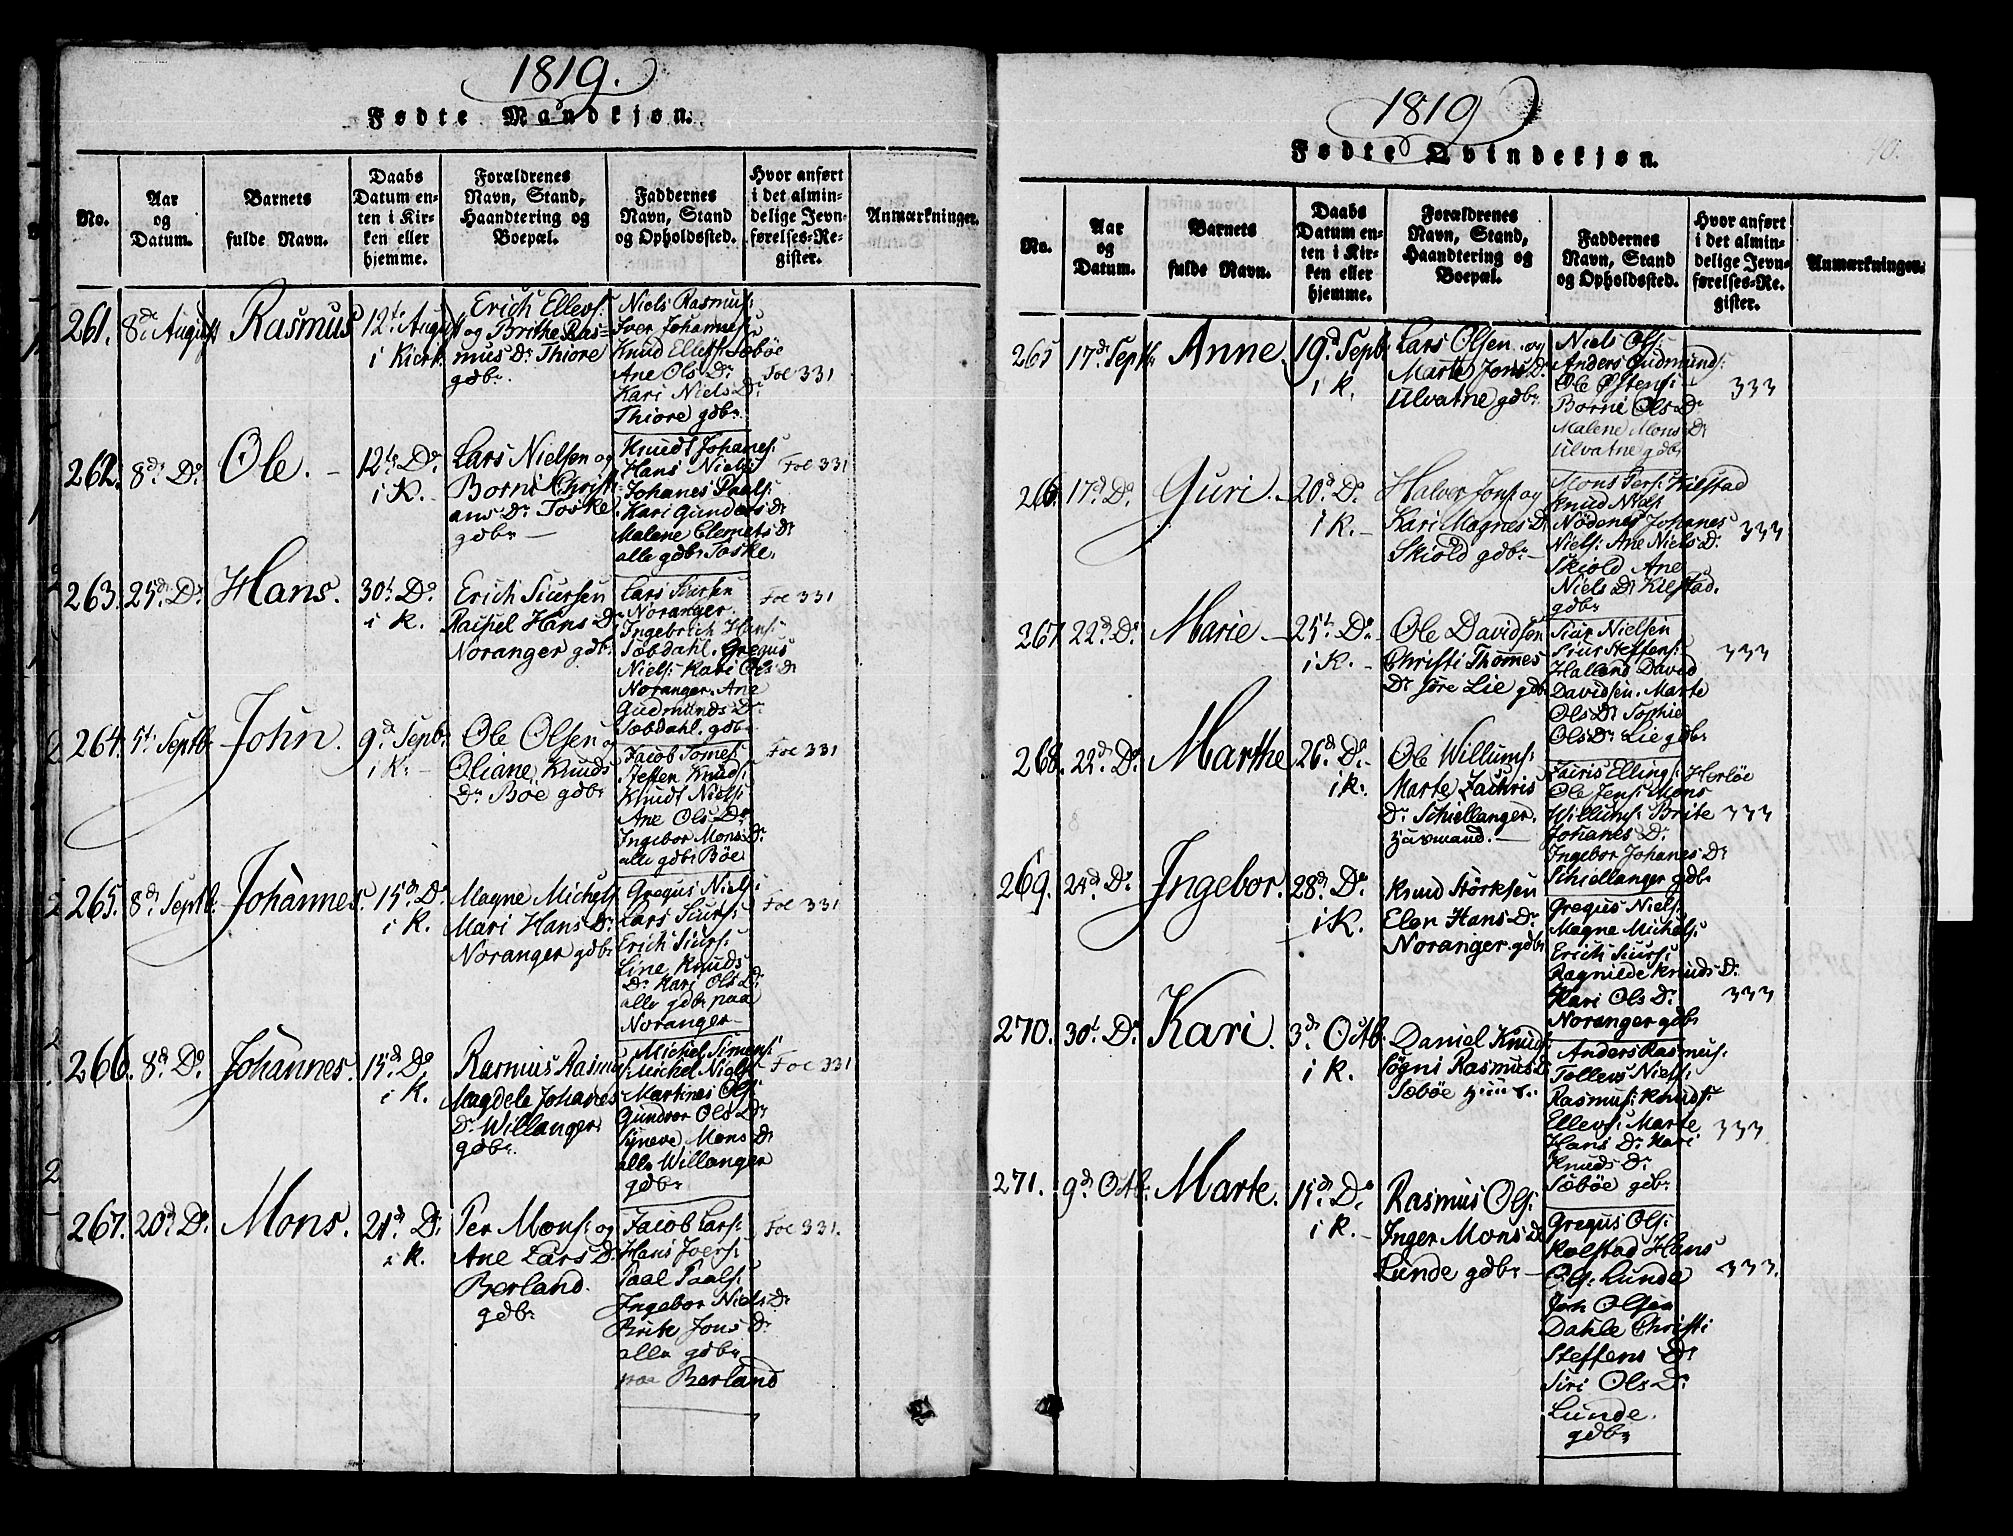 1819.
Fødte Mandkjøn.
No.
Aar
og
Datum.
Barnets
fulde Navn.
Daabs
Datum en-
ten i Kir-
ken eller
hjemme.
Forældrenes
Navn, Stand,
Haandtering og
Boepæl.
Faddernes
Navn, Stand
og Opholdssted.
Hvor anført
i det almin-
delige Jevn-
førelses-Re-
gister.
Anmærkninger.
261. 8de August Rasmus 12te August
i Kierk.
Erich Ellevs:
og Brithe Ras=
mus Dr Thiore
gdbr.
Niels Rasmus:
Iver Johannes:
Knud Ellefs: Sæbøe
Ane Ols Dr
Kari Niels Dr
Thiore gdbr.
Fol 331
262. 8de Do Ole. 12te Do
i K.
Lars Nielsen og
Borni Christi
ans Dr Toske
gdbr
Knudt Johanes:
Hans Niels:
Johanes Paals:
Kari Gunders Dr
Malene Clemets Dr
alle gdbr Toske.
Fol 331
263. 25de Do Hans. 30t Do
i K.
Erich Siursen
Raspel Hans Dr
Noranger gdbr
Lars Siursen
Noranger.
Ingebrich Hans:
Sæbdahl. Gregus
Niels: Kari Ols Dr
Noranger. Ane
Gudmunds Dr
Sæbdahl. gdbr
Fol 331
264. 5t Septbr John. 9d Sepbr
i K.
Ole Olsen og
Oliane Knuds
Dr Böe gdbr
Jacob Tomes:
Steffen Knud:
Knudt Niels:
Ane Ols Dr
Ingebor Mons Dr
alle gdbr Böe
Fol 331
265. 8de Septbr Johannes. 15de Do
i K.
Magne Michels
Mari Hans Dr
Noranger gdbr
Gregus Niels:
Lars Siurs:
Erich Siurs:
Line Knuds
Dr Kari Ols Dr
alle gdbr paa
Noranger
Fol 331
266. 8de Do Johannes. 15de Do
i K.
Rasmus Rasmus
Magdele Johanes
Dr Willanger
gdbr.
Michel Simens:
Michel Niels:
Martines Ols:
Gundror Ols Dr
Syneve Mons Dr
alle Willanger
gdbr
Fol 331
267. 20de Do Mons. 21de Do
i K.
Per Mons: og
Ane Lars Dr
Berland.
gdbr
Jacob Lars:
Hans Joers:
Paal Paals:
Ingebor Niels Dr
Brite Jons Dr
alle gdbr
paa Berland
Fol 331.
1819
Fødte Qvindekjøn.
40.
No.
Aar
og
Datum.
Barnets
fulde Navn.
Daabs
Datum en-
ten i Kir-
ken eller
hjemme.
Forældrenes
Navn, Stand,
Haandtering og
Boepæl.
Faddernes
Navn, Stand
og Opholdssted.
Hvor anført
i det almin-
delige Jevn-
førelses-Re-
gister.
Anmærkninger.
265 17de Septbr Anne. 19d Sepbr
i K.
Lars Olsen og
Marte Jons Dr
Ulvatne gdbr
Niels Ols:
Anders Gudmund:
Ole Østens:
Borni Ols Dr
Malene Mons Dr
Ulvatne gdbr
333
266. 17d Do Guri. 20d Do
i K.
Halver Jons: og
Kari Magnes Dr
Skiold gdbr
Mons Pers: Kilstad
Knud Niels
Nödenes Johanes
Niels: Ane Niels Dr
Skiold Ane
Niels Dr Kilstad.
gdbr
333
267 22d Do Marie 25t Do
i K.
Ole Davidsen
Christi Thomes
Dr Søre Lie gdbr
Siur Nielsen
Siur Steffens:
Halland David
Davidsen. Marte
Ols Dr Sophie
Ols Dr Lie gdbr
333
268. 22de Do Marthe 26de Do
i K.
Ole Willums:
Marte Zachris
Dr Schiellanger.
Huusmand.
Zacris Ellings: Herløe
Ole Jens: Mons
Willums: Brite
Johanes Dr
Ingebor Johanes Dr
Schiellanger gdbr
333
269. 24d Do Ingebor. 28de Do
i K.
Knud Störksen
Elen Hans Dr
Noranger gdbr
Gregus Niels:
Magne Michels:
Erich Siurs:
Ragnilde Knuds Dr
Kari Ols Dr
Noranger gdbr
333
270. 30t Do Kari. 3de Octb.
i K.
Daniel Knuds:
Søgni Rasmus Dr
Sæbøe
Anders Rasmus:
Tollevs Niels:
Rasmus: Knuds:
Ellevs: Marte
Hans Dr Kari
Knuds Dr
Sæbøe gdbr
333
271. 9de Octb. Marte. 15de Do
i K.
Rasmus Ols:
Inger Mons Dr
Lunde gdbr
Gregus Ols:
Kolstad Hans
Ols: Lunde
Joh Olsen
Dahle Christi
Steffens Dr
Siri Ols Dr
Lunde.
gdbr
333.